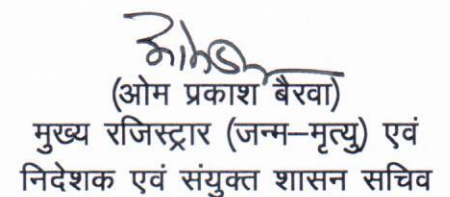 (ओम प्रकाश बैरवा)
मुख्य रजिस्ट्रार (जन्म–मृत्यु) एवं
निदेशक एवं संयुक्त शासन सचिव